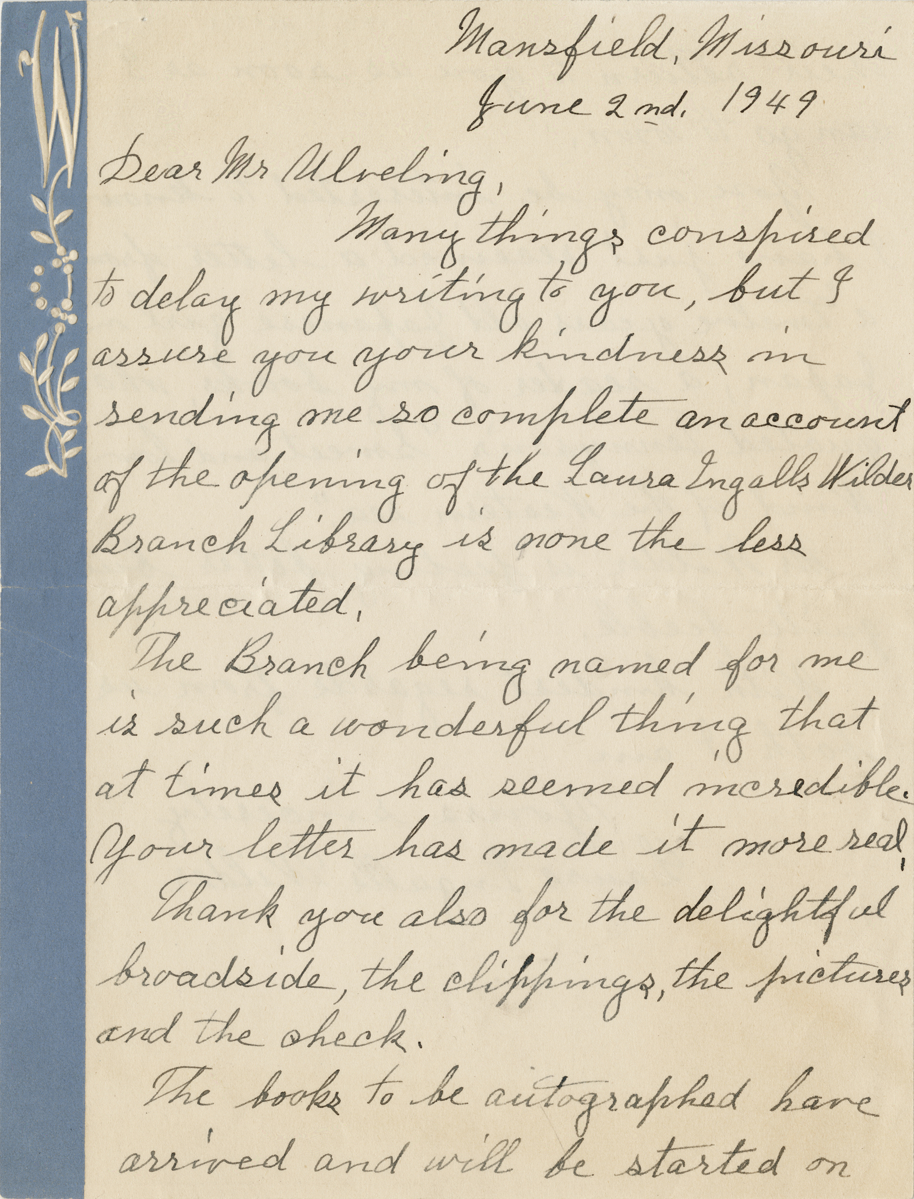 W
Mansfield, Missouri
June 2nd. 1949
Dear Mr Ulveling,
Many things conspired
to delay my writing to you, but I
assure you your kindness in
sending me so complete an account
of the opening of the Laura Ingalls Wilder
Branch Library is none the less
appreciated.
The Branch being named for me
is such a wonderful thing that
at times it has seemed incredible.
Your letter has made it more real.
Thank you also for the delightful
broadside, the clippings, the pictures
and the check.
The books to be autographed have
arrived and will be started on